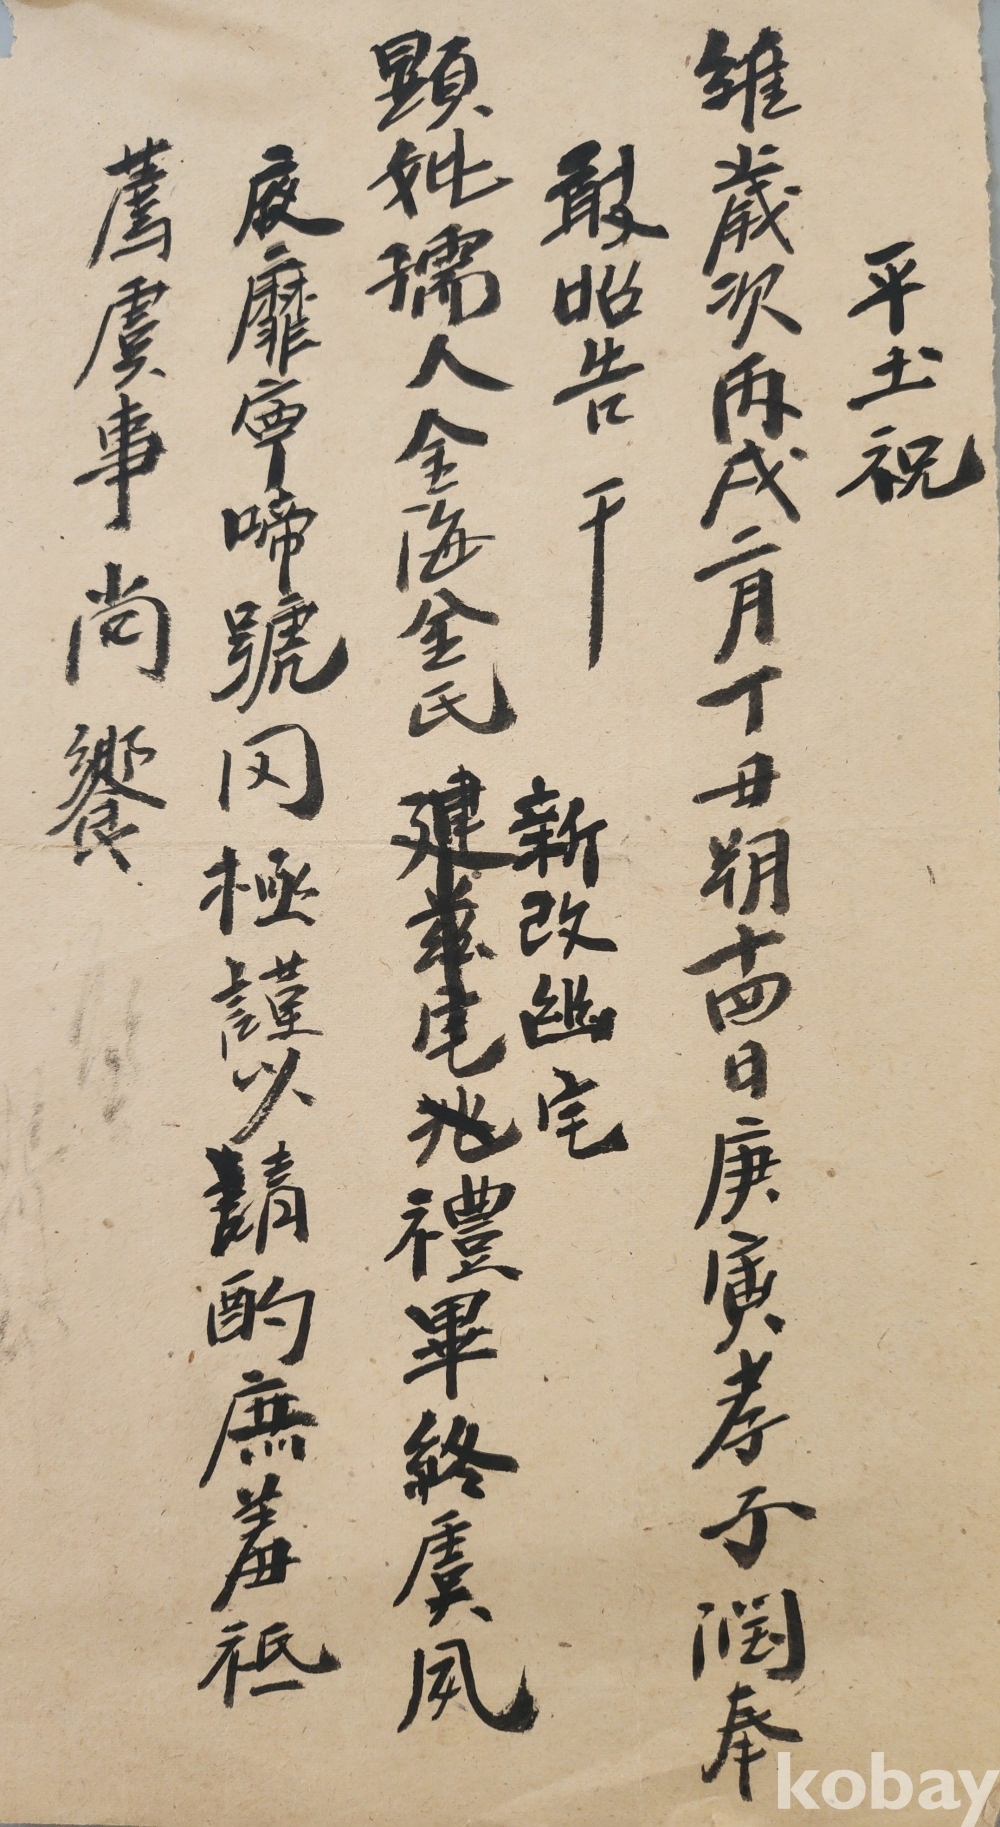 平土祝
維歲次丙戌二月丁丑朔十四日庚寅孝子潤奉
敢昭告于
新改幽宅
顯妣孺人金海金氏建玆宅兆禮畢終虞夙
夜靡寧啼號罔極謹以請酌庶羞祗
薦虞事尚饗
kobay